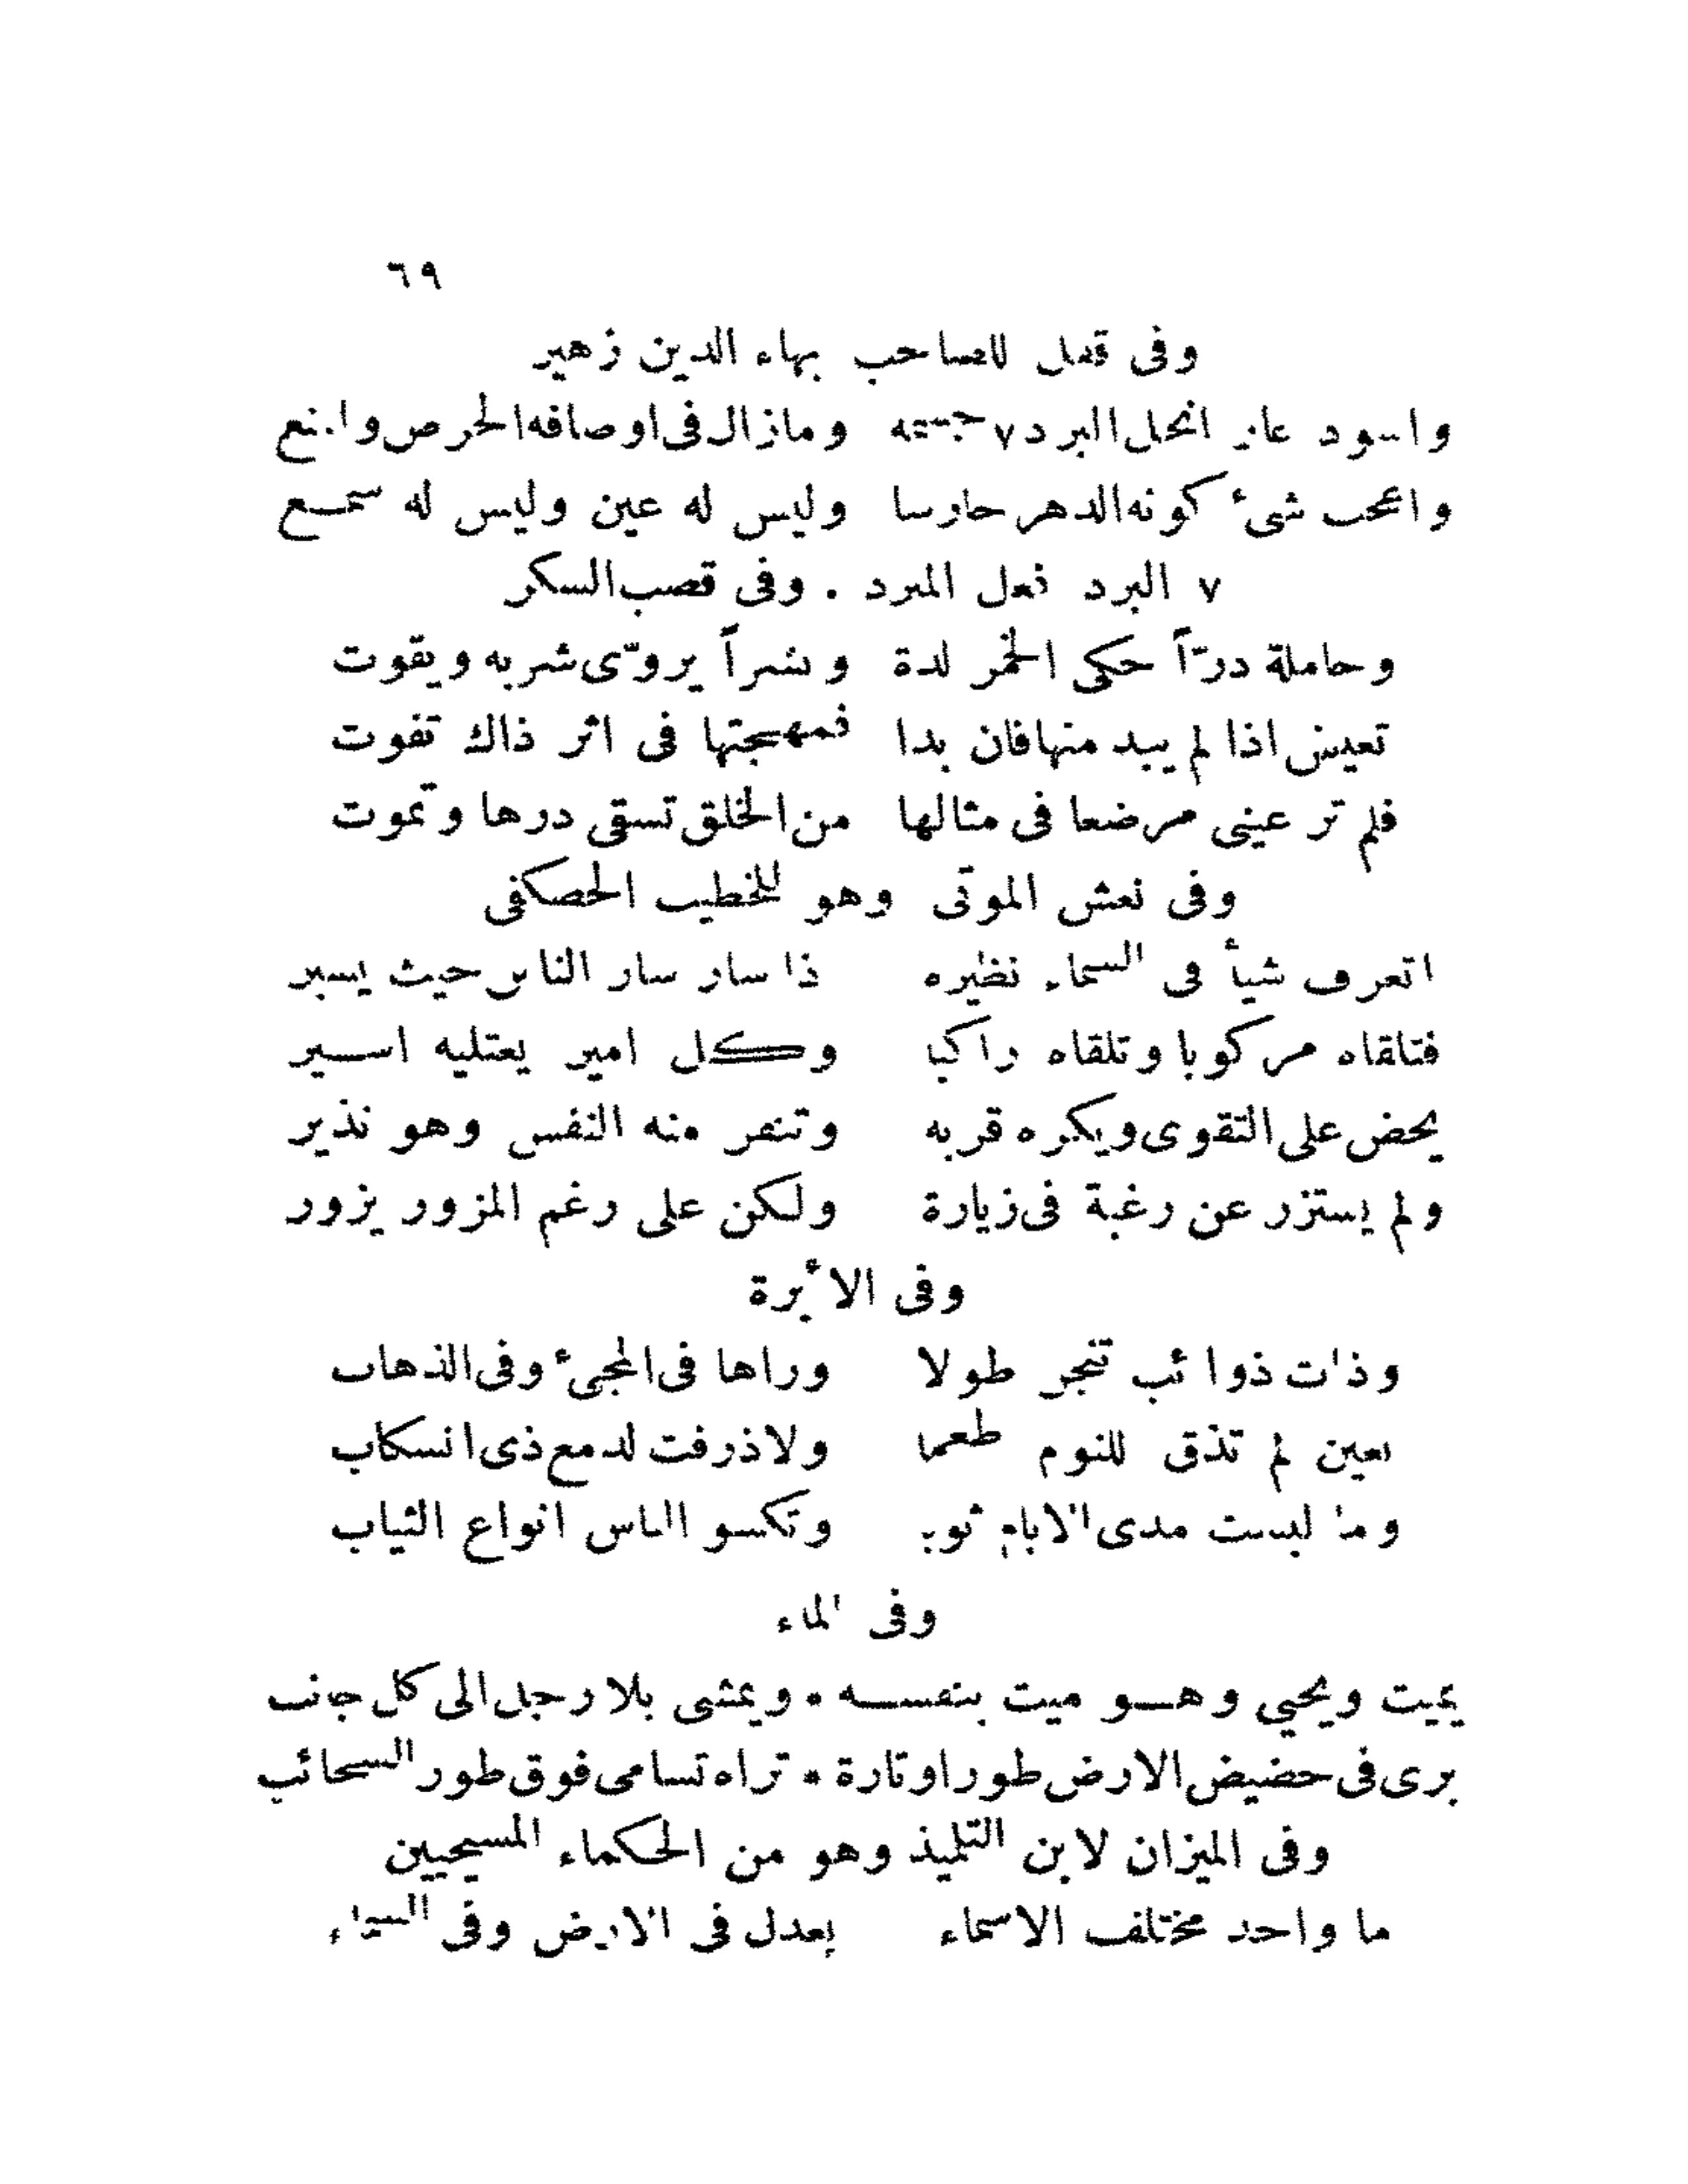 ٦٩
وفى قفل للصاحب بهاء الدين زهير
واسود عار انحل البرد ٧ جسمه ومازال فى اوصافه الحرص والمنع
واعجب شىء كونه الدهر حارسا وليس له عين وليس له سمع
٧ البرد فعل المبرد . وفى قصب السكر
وحاملة درّاً حكى الخمر لدة وشراً يروّى شربه ويقوت
تعيش اذا لم يبد منها فان بدا فمهجتها فى اثر ذاك تفوت
فلم تر عينى مرضعا فى مثالها من الخلق تسقى درها وتموت
وفى نعش الموتى وهو للخطيب الحصكفى
اتعرف شيأ فى السماء نظيره ذا سار سار الناس حيث يسير
فتلقاه مركوبا وتلقاه راكبا وكل امير يعتليه اسير
يحض على التقوى ويكره قربه وتنفر منه النفس وهو نذير
ولم يستزر عن رغبة فى زيارة ولكن على رغم المزور يزور
وفى الأبرة
وذات ذوائب تنجر طولا وراها فى المجىء وفى الذهاب
بعين لم تذق للنوم طعما ولا ذرفت لدمع ذى انسكاب
وما لبست مدى الايام ثوبا وتكسو الناس انواع الثياب
وفى الماء
يميت ويحيي وهو ميت بنفسه * ويمشى بلا رجل الى كل جانب
يرى فى حضيض الارض طورا وتارة * تراه تسامى فوق طور السحائب
وفى الميزان لابن التلميذ وهو من الحكماء المسيحيين
ما واحد مختلف الاسماء يعدل فى الارض وفى السماء